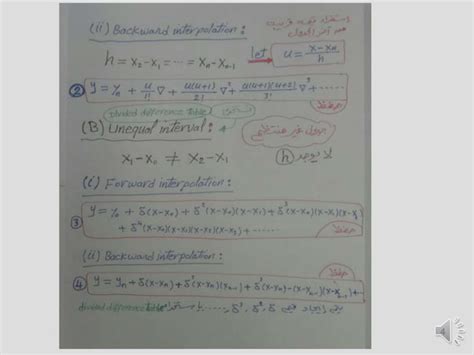 (ii) Backward interpolation:
h = x₂-x₁ = ... = xₙ-xₙ₋₁
let u = x-xₙ/h
② y = yₙ + u/1! ∇ + u(u+1)/2! ∇² + u(u+1)(u+2)/3! ∇³ + ......
حفظ
divided difference table
(B) Unequal interval:
x₁-x₀ ≠ x₂-x₁
(h) لا يوجد
(i) Forward interpolation:
③ y = y₀ + δ(x-x₀) + δ²(x-x₀)(x-x₁) + δ³(x-x₀)(x-x₁)(x-x₂)
+ δ⁴(x-x₀)(x-x₁)(x-x₂)(x-x₃) + ......
حفظ
(ii) Backward interpolation:
حفظ
④ y = yₙ + δ(x-xₙ) + δ²(x-xₙ)(xₙ₋₁) + δ³(x-xₙ)-(x-xₙ₋₁)(x-xₙ₋₂)+...
divided difference table